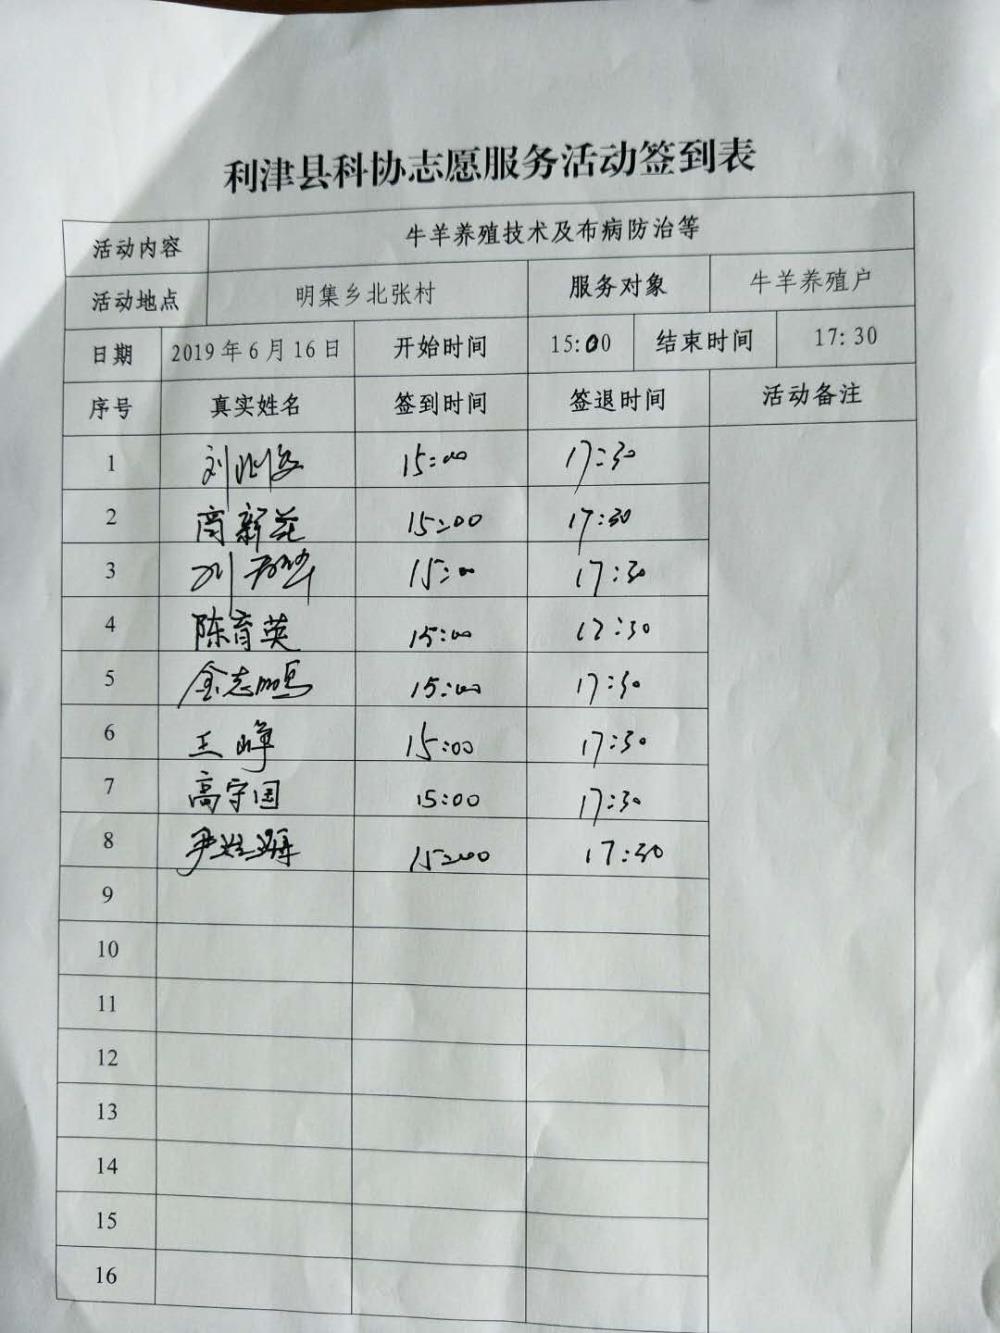 利津县科协志愿服务活动签到表
活动内容 牛羊养殖技术及布病防治等
活动地点 明集乡北张村 服务对象 牛羊养殖户
日期 2019年6月16日 开始时间 15:00 结束时间 17:30
序号 真实姓名 签到时间 签退时间 活动备注
1 15:00 17:30
2 商新花 15:00 17:30
3 15:00 17:30
4 陈育英 15:00 17:30
5 金志鹏 15:00 17:30
6 王峥 15:00 17:30
7 高守国 15:00 17:30
8 15:00 17:30
9
10
11
12
13
14
15
16